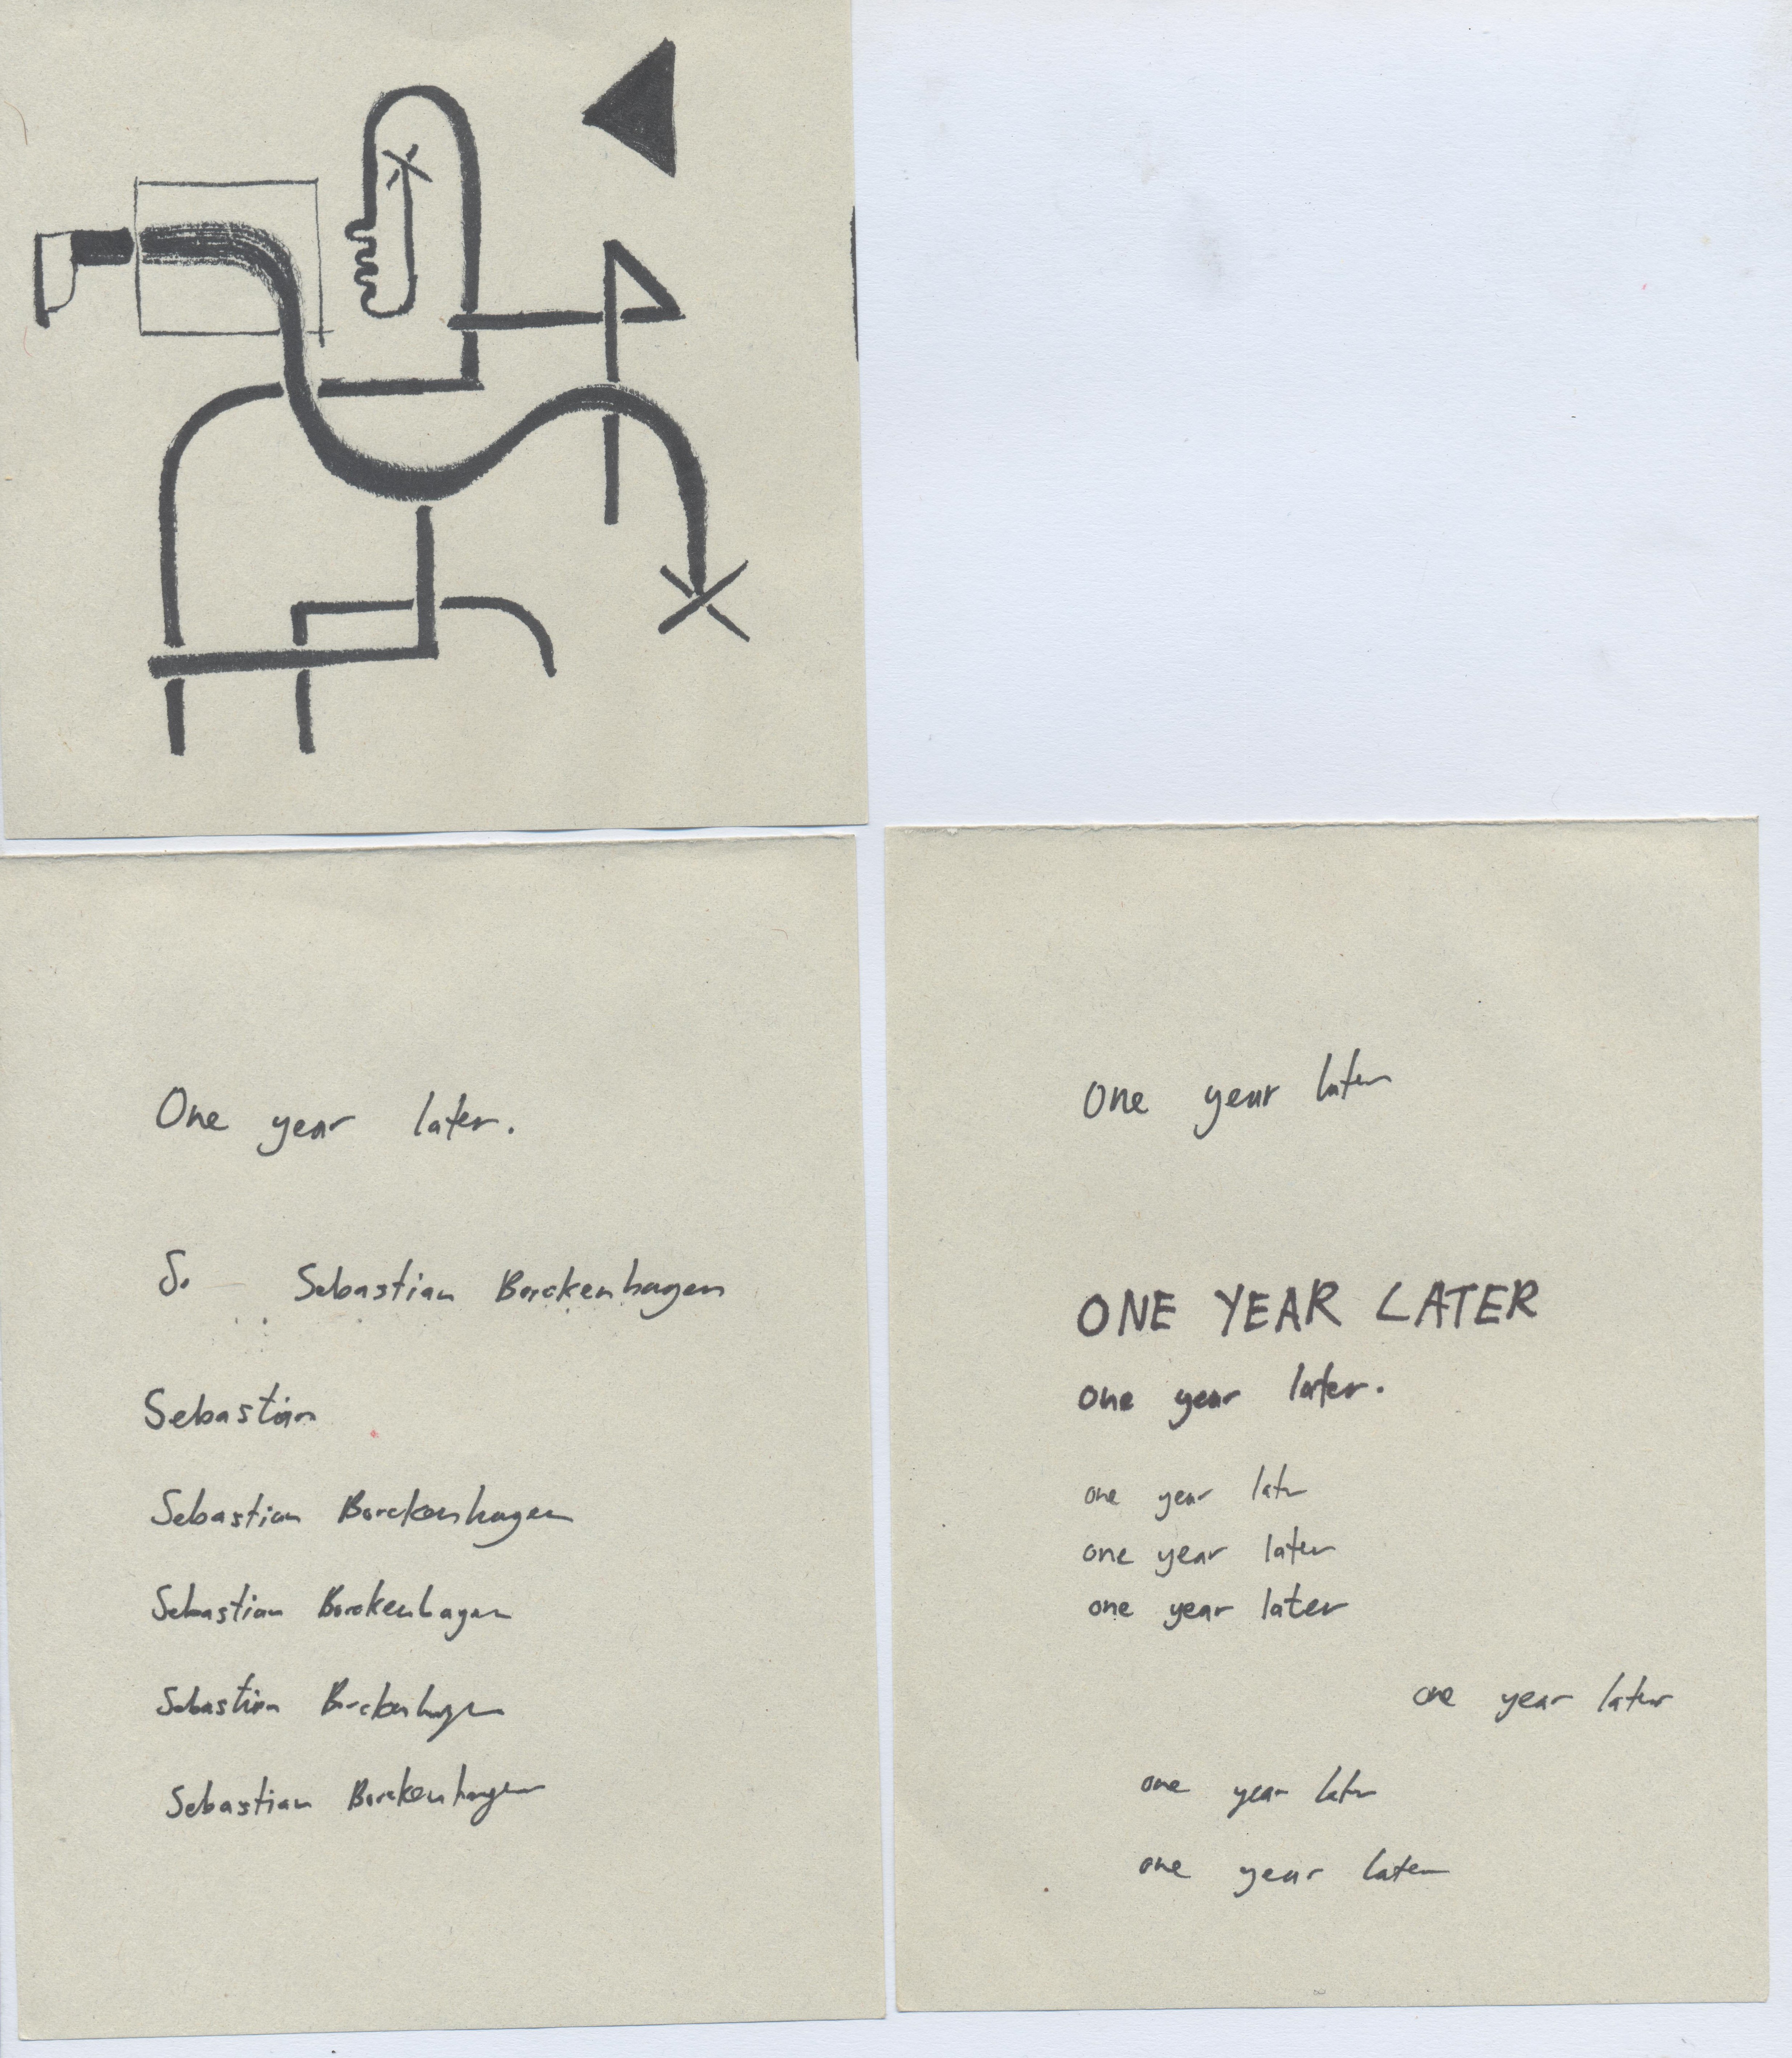 One year later.
S. Sebastian Borckenhagen
Sebastian
Sebastian Borckenhagen
Sebastian Borckenhagen
Sebastian Borckenhagen
Sebastian Borckenhagen
One year later
ONE YEAR LATER
one year later.
one year later
one year later
one year later
one year later
one year later
one year later